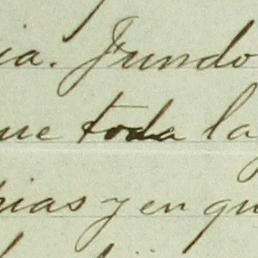 ia. Fundo
ue toda la
ias y en qu